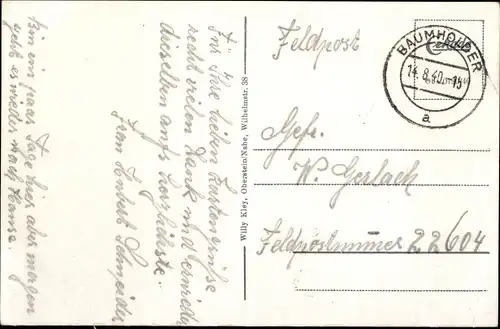 Für Ihre lieben Kartengrüße
recht vielen Dank und erwidre
dieselben aufs herzlichste.
Frau Herbert Schneider
Bin ein paar Tage hier aber morgen
geht es wieder nach Hause.
Willy Kley, Oberstein/Nahe, Wilhelmstr. 38
Feldpost
BAUMHOLDER
14.8.40.-18
a
Gefr.
W. Gerlach
Feldpostnummer 22604